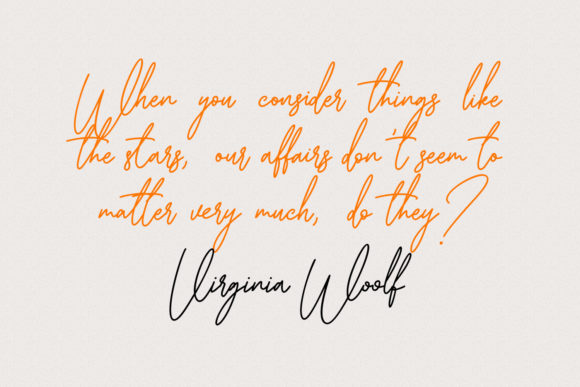 When you consider things like
the stars, our affairs don't seem to
matter very much, do they?
Virginia Woolf